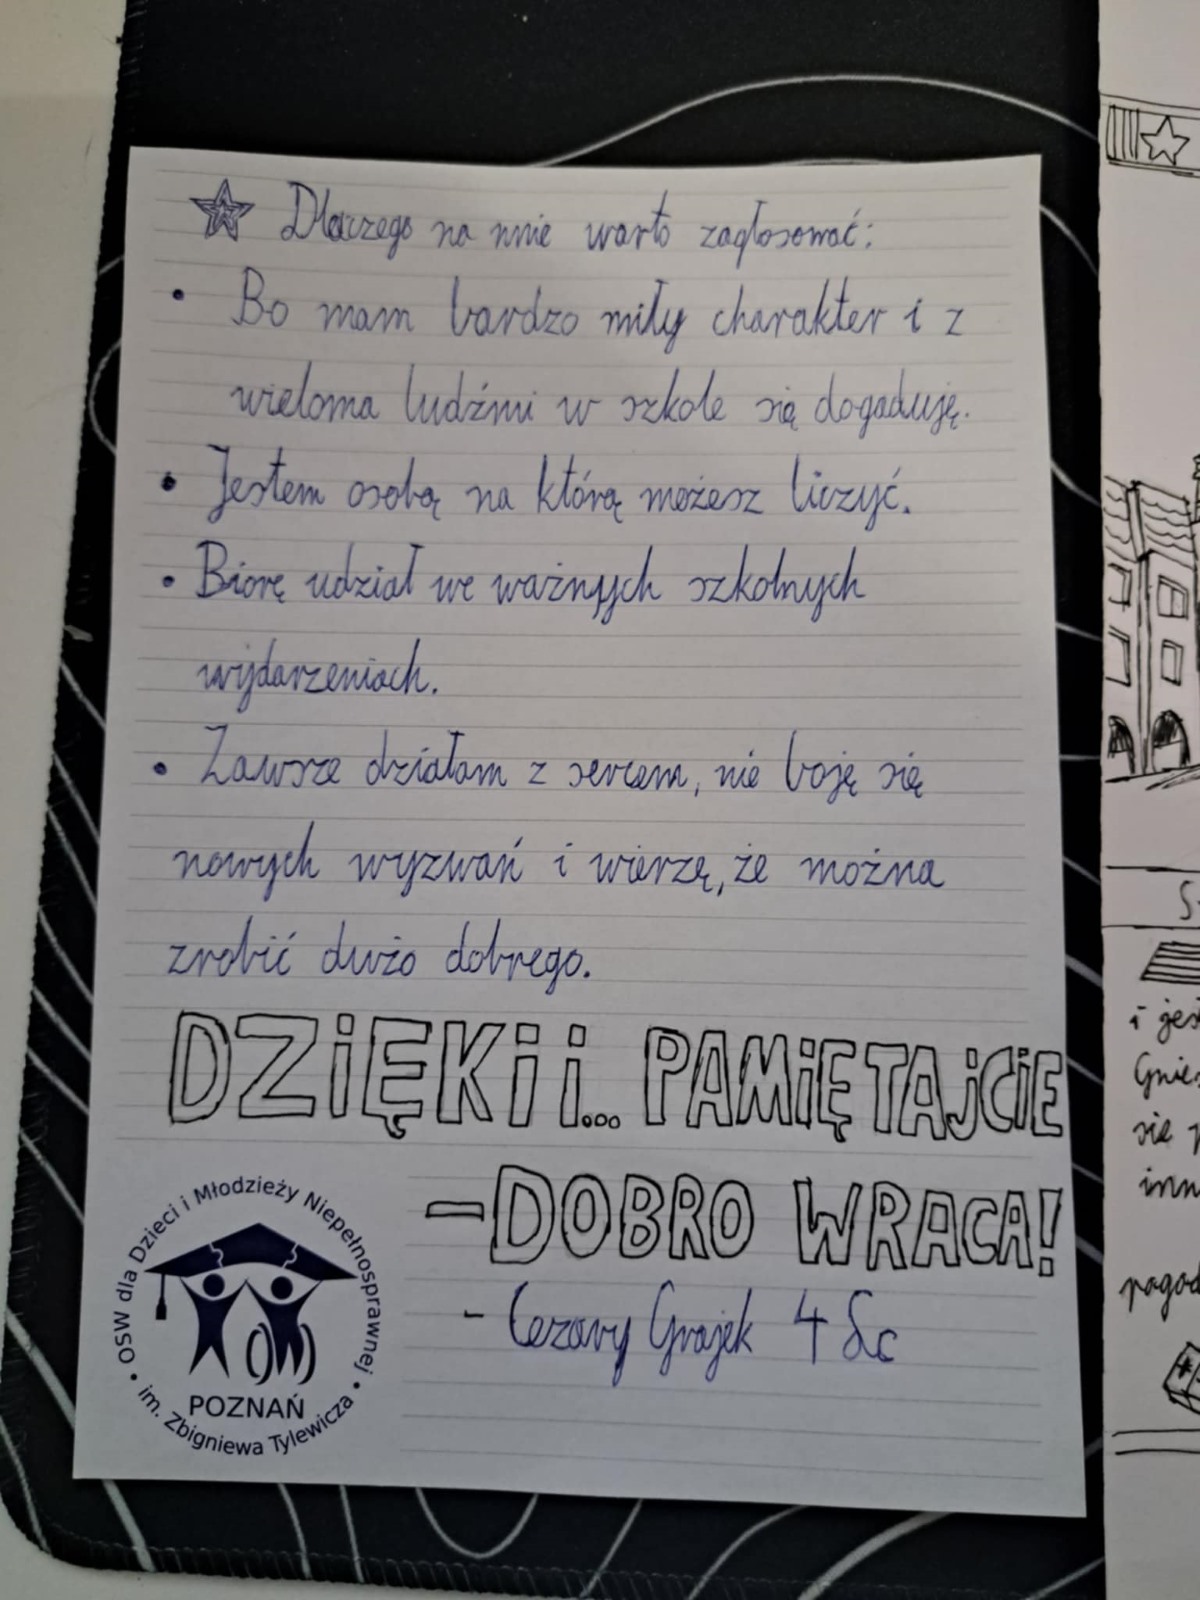 Dlaczego na mnie warto zagłosować:
• Bo mam bardzo miły charakter i z
wieloma ludźmi w szkole się dogaduję.
• Jestem osobą na którą możesz liczyć.
• Biorę udział we ważnych szkolnych
wydarzeniach.
• Zawsze działam z sercem, nie boję się
nowych wyzwań i wierzę, że można
zrobić dużo dobrego.
DZIĘKI i... PAMIĘTAJCIE
-DOBRO WRACA!
- Cezary Grajek 4
OSW dla Dzieci i Młodzieży Niepełnosprawnej •
POZNAŃ
im. Zbigniewa Tylewicza •
i
się